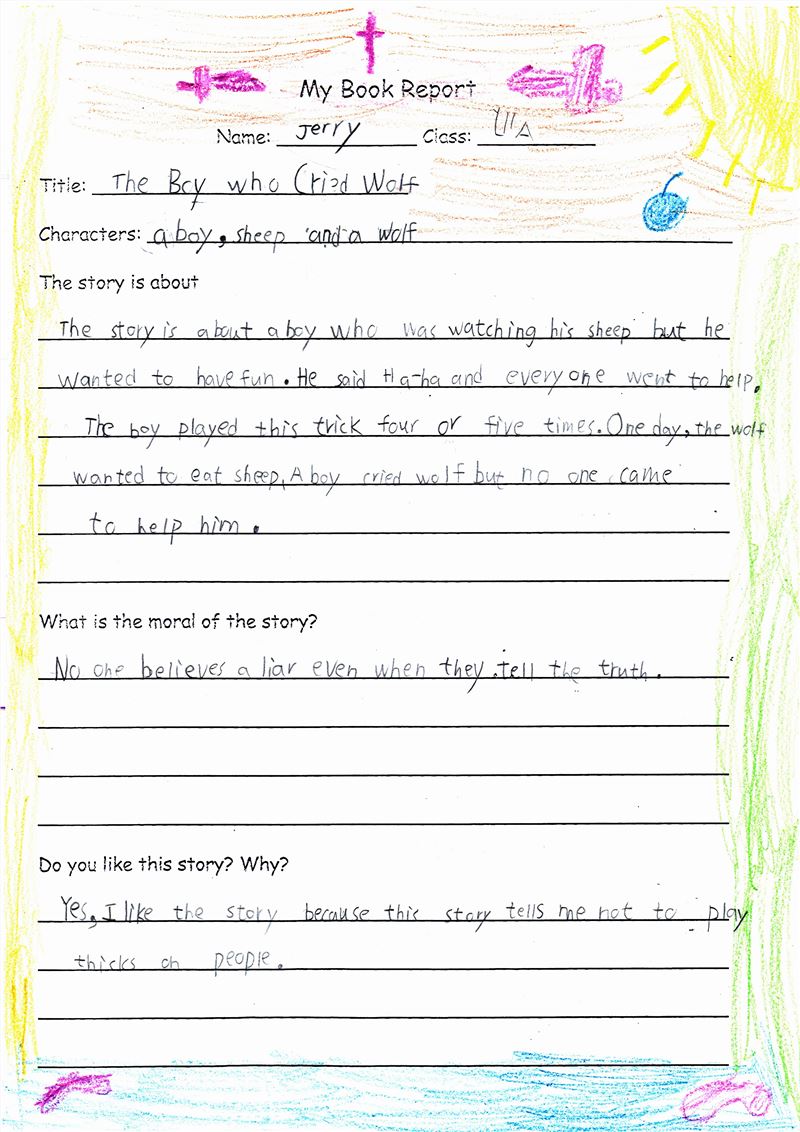 My Book Report
Name: Jerry Class: U1A
Title: The Boy who Cried Wolf
Characters: a boy, sheep and a wolf
The story is about
The story is about a boy who was watching his sheep but he
wanted to have fun. He said Ha-ha and everyone went to help.
The boy played this trick four or five times. One day, the wolf
wanted to eat sheep, A boy cried wolf but no one came
to help him.
What is the moral of the story?
No one believes a liar even when they tell the truth.
Do you like this story? Why?
Yes, I like the story because this story tells me not to play
thicks on people.